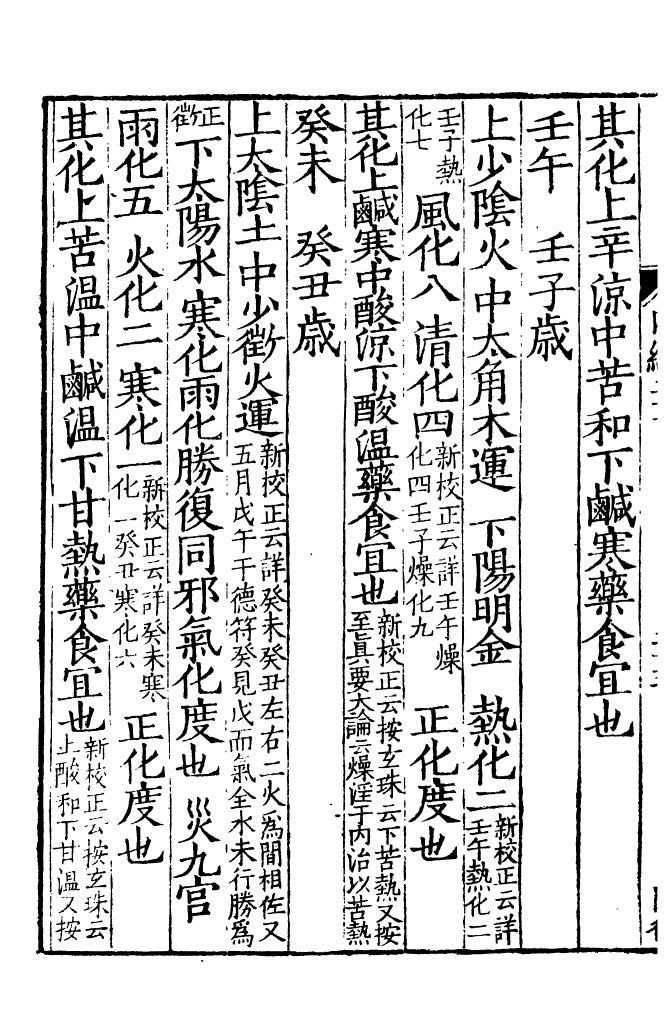 其化上辛涼中苦和下鹹寒藥食宜也
壬午　壬子歲
上少陰火　中太角木運　下陽明金　熱化二新校正云詳壬午熱化二
壬子熱化七　風化八　清化四新校正云詳壬午燥化四壬子燥化九　正化度也
其化上鹹寒中酸涼下酸溫藥食宜也新校正云按玄珠云下苦熱又按至真要大論云燥淫于內治以苦熱
癸未　癸丑歲
上太陰土　中少徵火運新校正云詳癸未癸丑左右二火為間相佐又五月戊午干德符癸見戊而氣全水未行勝為
正徵　下太陽水　寒化雨化勝復同邪氣化度也　災九宮
雨化五　火化二　寒化一新校正云詳癸未寒化一癸丑寒化六　正化度也
其化上苦溫中鹹溫下甘熱藥食宜也新校正云按玄珠云上酸和下甘溫又按